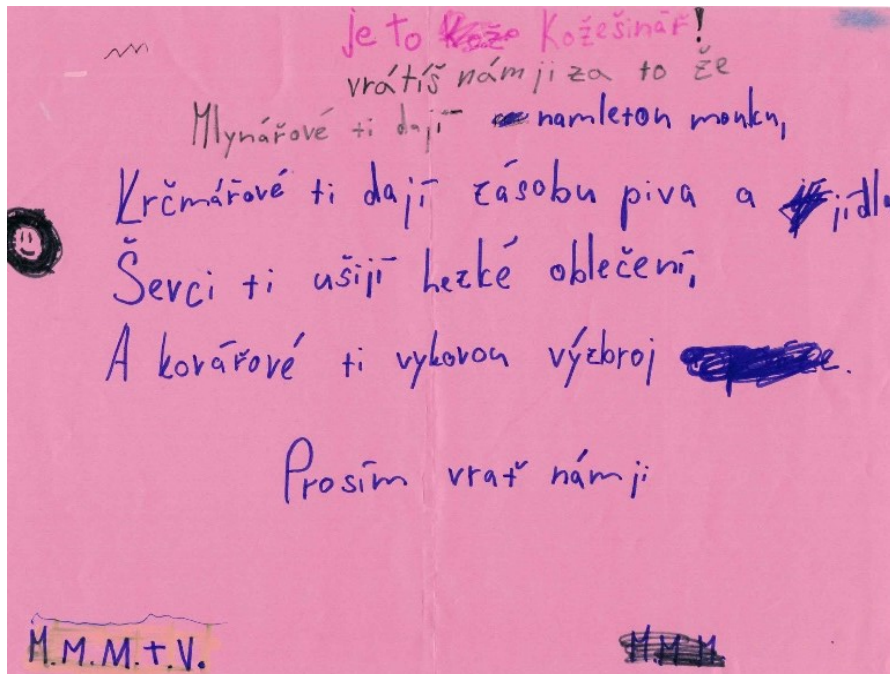 je to Kožešinář!
vrátíš nám ji za to že
Mlynářové ti dají namletou mouku,
Krčmářové ti dají zásobu piva a jídla
Ševci ti ušijí hezké oblečení,
A kovářové ti vykovou výzbroj
Prosím vrať nám ji
M.M.M.+.V.
M.M.M.